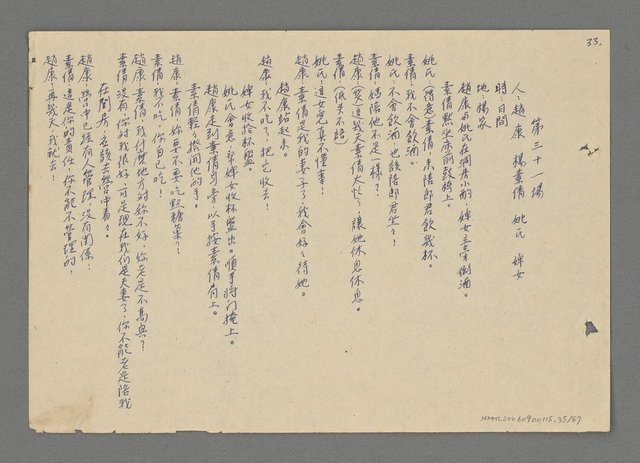 33.
第三十一場
人：趙康　楊素倩　姚氏　婢女
時：日間
地：楊家
趙康與姚氏在洞房小酌，婢女立旁倒酒。
素倩默坐床前鼓椅上。
姚氏：（得意）素倩，來陪郎君飲幾杯。
素倩：我不會飲酒。
姚氏：不會飲酒，也該陪郎君坐坐！
素倩：媽陪他不是一樣？
趙康：（笑）這幾天素倩太忙了，讓她休息休息。
素倩（低头不語）
姚氏：這女兒真不懂事！
趙康：素倩是我的妻子，我會好好待她。
趙康站起來。
趙康：我不吃了，把它收去！
婢女收拾杯盤。
姚氏會意，幫婢女收杯盤出。順手將门掩上。
趙康走到素倩身旁，以手按素倩肩上。
素倩輕輕撥開他的手。
趙康：素倩，妳要不要吃點糖菓？
素倩：我不吃，你自己吃！
趙康：素倩，我什麼地方對妳不好，妳老是不高興？
素倩：没有，你对我很好，可是現在我们是夫妻了，你不能老是陪我
在閨房，应該去營中看看。
趙康：營中已經有人管理，沒有関係！
素倩：這是你的責任，你不能不管理的！
趙康：再幾天，我就去！
NMTL20060900115,33/67